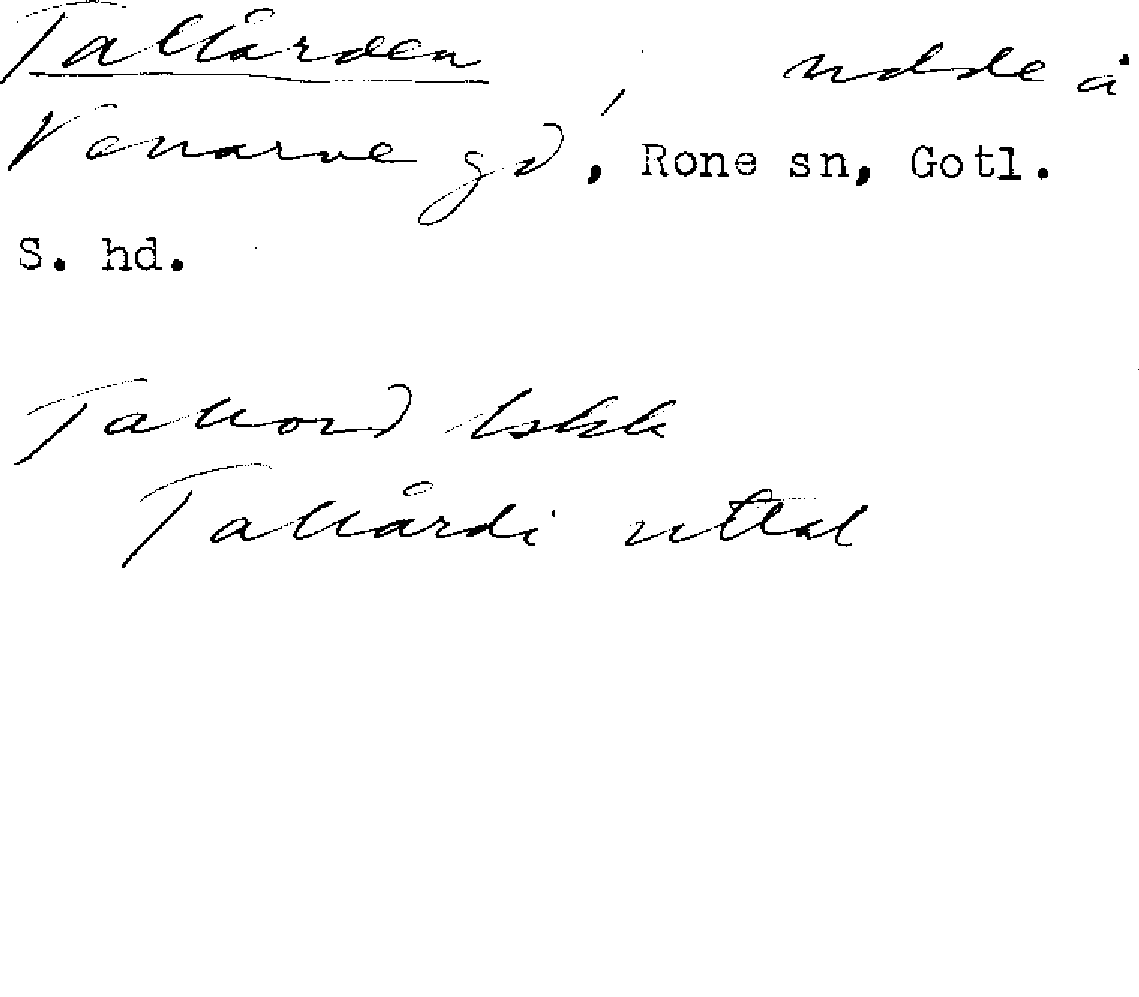 Tallården, udde å
Venarve gd, Rone sn, Gotl.
S. hd.
Tallord lskk
Tallårdi uttal